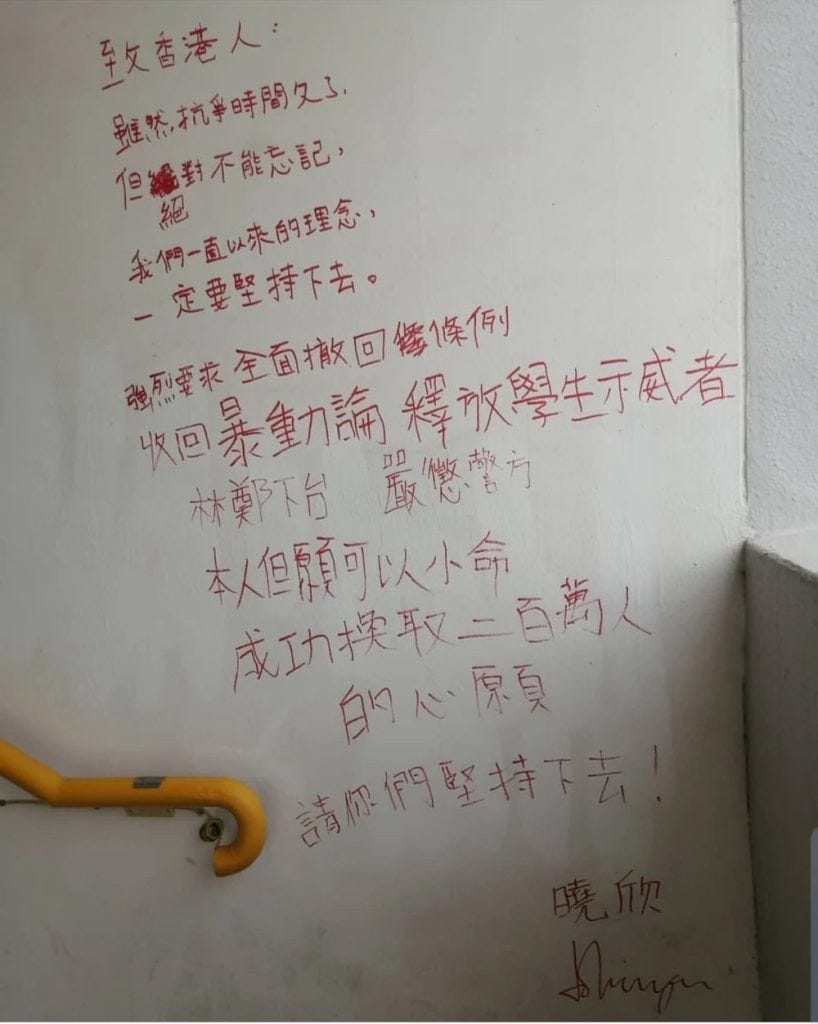 致香港人：
雖然,抗爭時間久了,
但對不能忘記,
絕
我們一直以來的理念,
一定要堅持下去。
強烈要求 全面撤回條例
收回暴動論 釋放學生示威者
林鄭下台 嚴懲警方
本人但願可以小命
成功換取二百萬人
的心願
請你們堅持下去！
曉欣